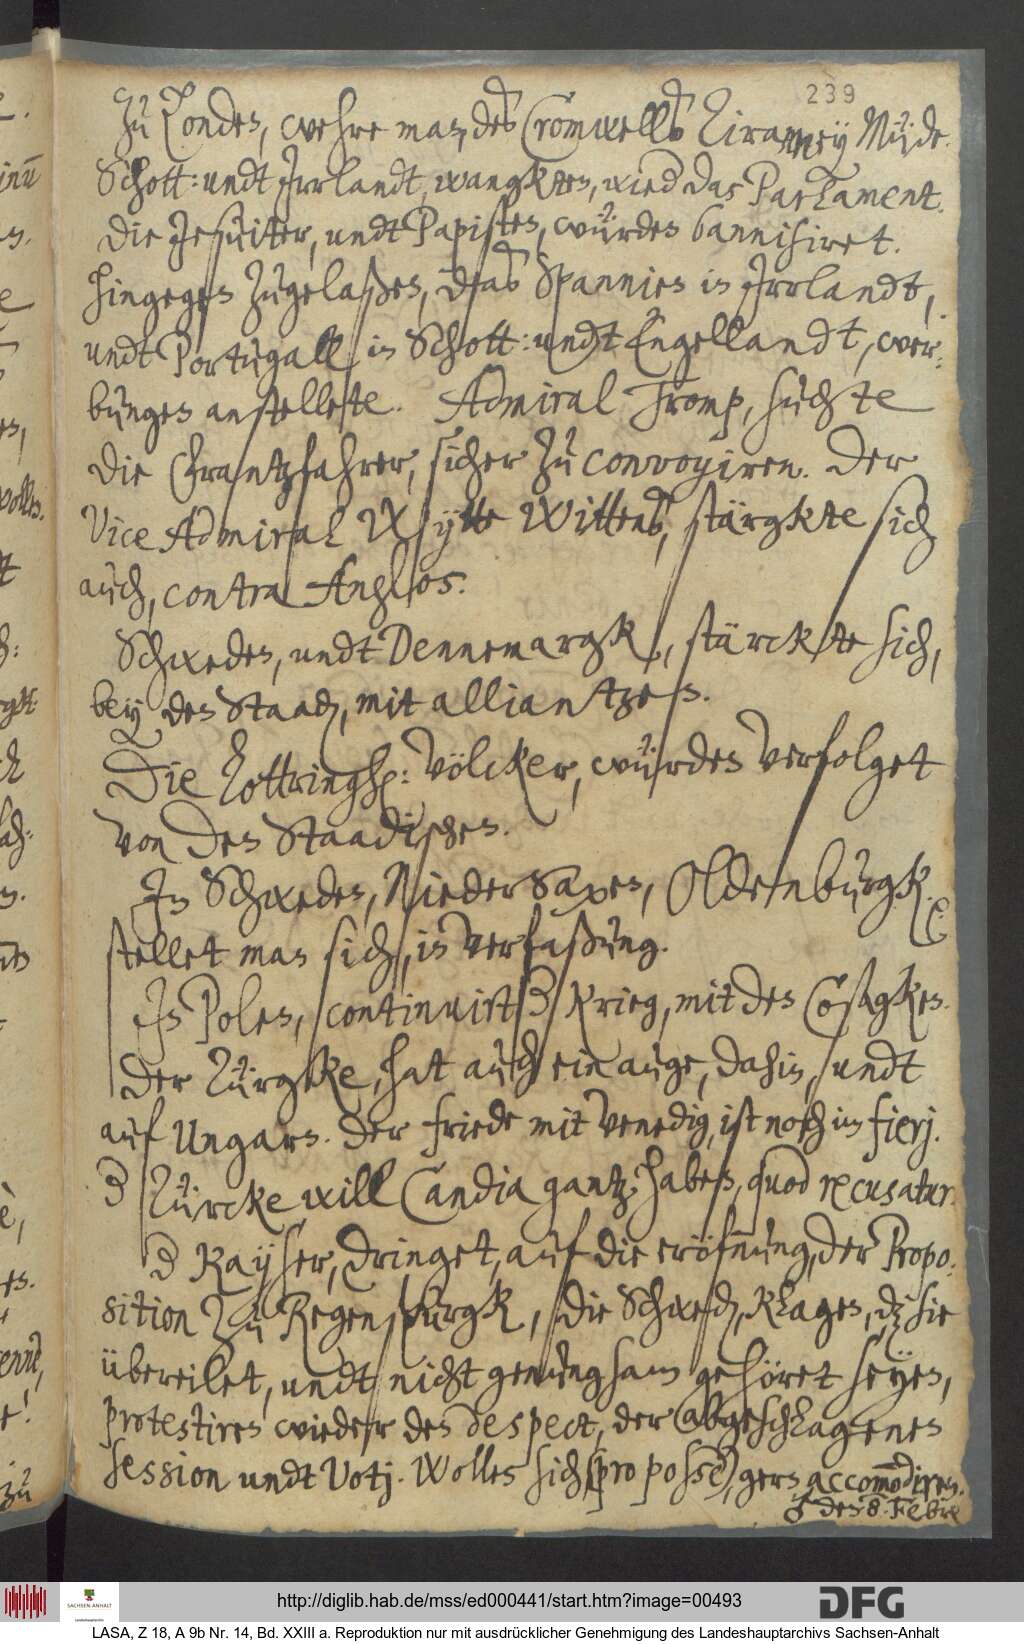 239
Zu Londen, wehre man des Cromwells Tiranney Müde.
Schott: undt Irrlandt, wangkten, wied das Parlament.
die Jesuiter, undt Papisten, würden bannisiret.
hingegen zugelaßen, das Spannien in Irrlandt,
undt Portugall in Schott: undt Engellandt, wer-
bungen anstellete. Admiral Tromp, suchte
die Frantzfahrer, sicher zu convoyiren. Der
Vice Admiral Wytte Wittens, stärgkte sich
auch, contra Anglos.
Schweden, undt Dennemargk, stärckte sich,
bey den Staad, mit alliantzen.
Die Lottringsche: Völcker, würden verfolget
von den Staadischen.
In Schweden, NiederSaxen, Oldenburgk.
stellet man sich, in verfaßung.
In Polen, continuirt der Krieg, mit den Cosagken.
der Türgke, hat auch ein auge, dahin, undt
auf Ungarn. der friede mit Venedig, ist noch in fierj.
der Türcke will Candia gantz haben, quod recusatur.
der Kayser, dringet, auf die eröfnung, der Propo-
sition zu Regenspurgk, die Schwed, klagen, daß sie
übereilet, undt nicht genungsam gehöret seyen,
protestiren wieder den despect, der abgeschlagenen
session undt Votj. Wollen sich (pro posse) gern accommodiren.
♂ den 8. Febr
http://diglib.hab.de/mss/ed000441/start.htm?image=00493
DFG
SACHSEN-ANHALT
LASA, Z 18, A 9b Nr. 14, Bd. XXIII a. Reproduktion nur mit ausdrücklicher Genehmigung des Landeshauptarchivs Sachsen-Anhalt